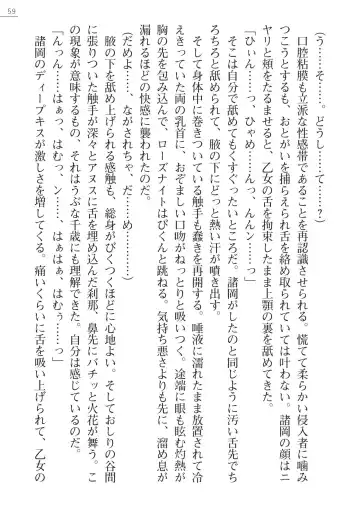 59
(う……そ……。どうし……て……?)
口腔粘膜も立派な性感帯であることを再認識させられる。慌てて柔らかい侵入者に噛み
つこうとするも、おとがいを捕らえられ舌を絡め取られていては叶わない。諸岡の顔はニ
ヤリと頬をたるませると、乙女の舌を拘束したまま上顎の裏を舐めてきた。
「ひぃん……っ、ひゃめ……んっ、んんン……っ」
そこは自分で舐めてもくすぐったいところだ。諸岡がしたのと同じように汚い舌先でち
ろちろと舐められて、腋の下にどっと熱い汗が噴き出す。
そして身体中に巻きついている触手も蠢きを再開する。唾液に濡れたまま放置されて冷
えきっていた両の乳首に、おぞましい口吻がねっとりと吸いつく。途端に眼も眩む灼熱が
胸の先を包み込んで、ローズナイトはびくんと跳ねる。気持ち悪さよりも先に、溜め息が
漏れるほどの快感に襲われたのだ。
(だめよ……、ながされちゃ、だ……め……)
腋の下を舐め上げられる感触も、総身がびくつくほどに心地よい。そしておしりの谷間
に張りついた触手が深々とアヌスに舌を埋め込んだ刹那、鼻先にバチッと火花が舞う。こ
の現象が意味するもの、それはうぶな千歳にも理解できた。自分は感じているのだ。
「んっん……はぁっ、はむっ、ン……、はぁはぁ、はむぅ……っ」
諸岡のディープキスが激しさを増してくる。痛いくらいに舌を吸い上げられて、乙女の